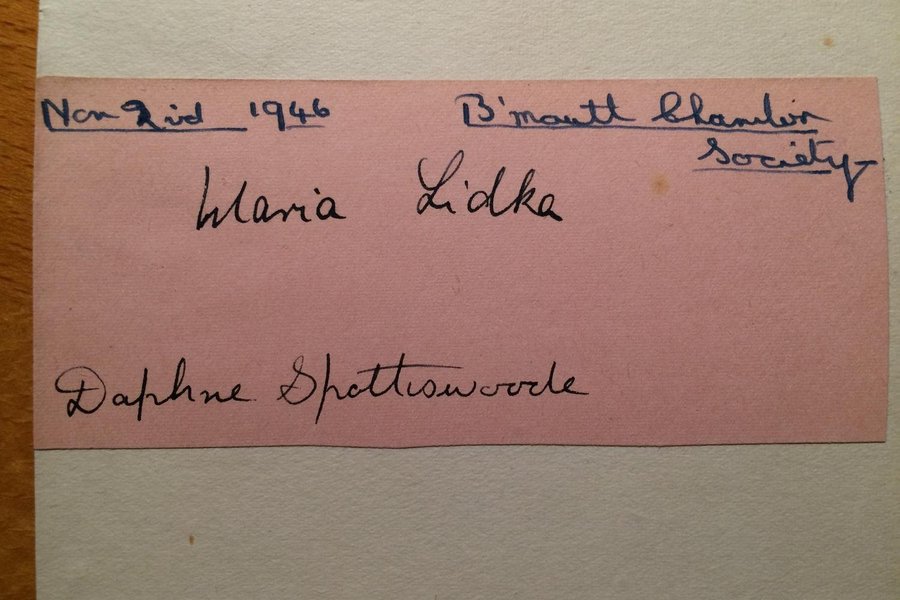 Nov 2nd 1946 B'mouth Chamber
Society
Maria Lidka
Daphne Spottiswoode